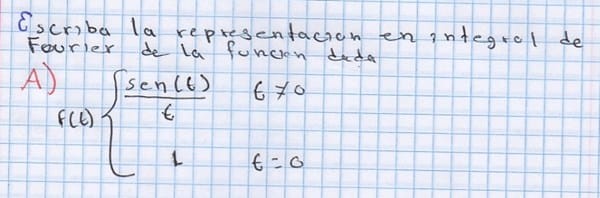 Escriba la representacion en integral de
Fourier de la funcion dada
A)
sen(t) t≠0
f(t) t
1 t=0